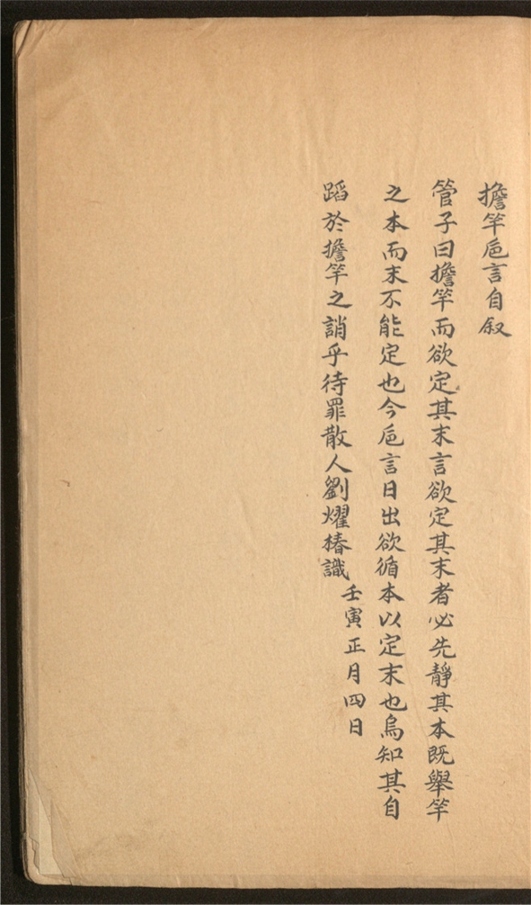 擔竿巵言自叙
管子曰擔竿而欲定其末言欲定其末者必先靜其本既舉竿
之本而末不能定也今巵言日出欲循本以定末也烏知其自
蹈於擔竿之誚乎待罪散人劉燿椿識
壬寅正月四日